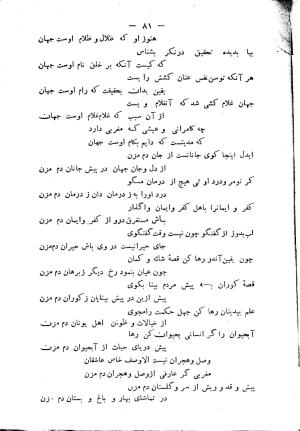 — ٨١ —
هنوز او که ظلال و ظلام اوست جهان
بیا بدیده تحقیق درنگر بشناس
که کیست آنکه بر خلق نام اوست جهان
هر آنکه توسن نفس عنان کشش را بست
یقین بداند بحقیقت که رام اوست جهان
جهان غلام کشی شد که آنغلام وبست
از آن سبب که غلام غلام اوست جهان
چه کامرانی و عیشی که مغربی دارد
که مدتیست که دایم بکام اوست جهان
ایدل اینجا کوی جانانست از جان دم مزن
از دل وجان جهان در پیش جانان دم مزن
گر تو مرد درد او ئی هیچ از درمان مگو
درد او را به ز درمان دان ز درمان دم مزن
کفر و ایمانرا باهل کفر و ایمان واگذار
باش مستغرق درو از کفر وایمان دم مزن
لب بدوز از گفتگو چون نیست وقت گفتگوی
جای حیرانیست در وی باش حیران دم مزن
چون یقین آمد رها کن قصهٔ شك و گمان
چون عیان بنمود رخ دیگر ز برهان دم مزن
قصهٔ کوران به پیش مردم بینا بگوی
پیش ازین در پیش بینایان ز کوران دم مزن
علم بیدینان رها کن جهل حکمت را مجوی
از خیالات و ظنون اهل یونان دم مزن
آبحیوان را گر انسانی بحیوان کن رها
پیش دریای حیات از آبحیوان دم مزن
وصل وهجران نیست الاوصف خاص عاشقان
مغربی گر عارفی از وصل وهجران دم مزن
پیش و قد و رویش از سرو وگلستان دم مزن
در تماشای بهار و باغ و بستان دم مزن